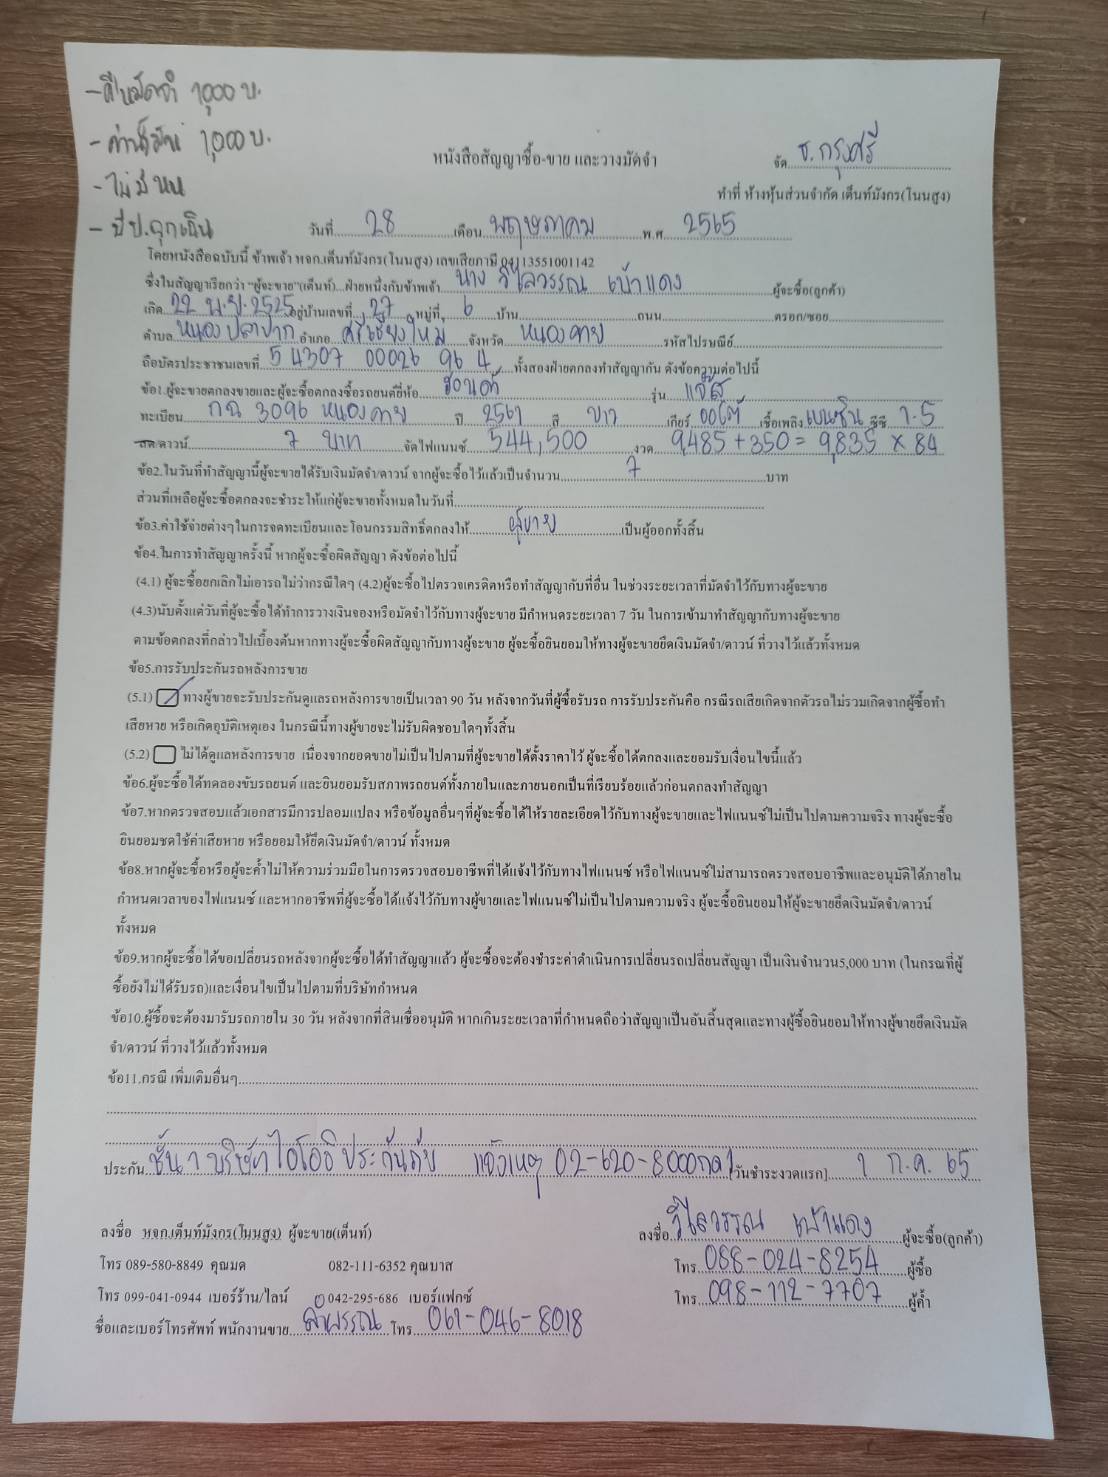 - คืนมัดจำ 1,000 บ.
- ค่าน้ำมัน 1,000 บ.
- ไม่มี
- มีป.ฉุกเฉิน
หนังสือสัญญาซื้อ-ขาย และวางมัดจำ
จัด ธ.กรุงศรี
ทำที่ ห้างหุ้นส่วนจำกัด เต็นท์มังกร(โนนสูง)
วันที่ 28 เดือน พฤษภาคม พ.ศ. 2565
โดยหนังสือฉบับนี้ ข้าพเจ้า หจก.เต็นท์มังกร(โนนสูง) เลขเสียภาษี 0413551001142
ซึ่งในสัญญาเรียกว่า "ผู้จะขาย"(เต็นท์)...ฝ่ายหนึ่งกับข้าพเจ้า นาง วิไลวรรณ เบ้าแดง ผู้จะซื้อ(ลูกค้า)
เกิด 22 พ.ย. 2525 อยู่บ้านเลขที่ 27 หมู่ที่ 6 บ้าน ถนน ตรอก/ซอย
ตำบล หนองปลาปาก อำเภอ ศรีเชียงใหม่ จังหวัด หนองคาย รหัสไปรษณีย์
ถือบัตรประชาชนเลขที่ 5 4307 00026 96 4 ทั้งสองฝ่ายตกลงทำสัญญากัน ดังข้อความต่อไปนี้
ข้อ1.ผู้จะขายตกลงขายและผู้จะซื้อตกลงซื้อรถยนต์ยี่ห้อ ฮอนด้า รุ่น แจ๊ส
ทะเบียน กฉ 3096 หนองคาย ปี 2561 สี ขาว เกียร์ ออโต้ เชื้อเพลิง เบนซิน ซีซี 1.5
สด/ดาวน์ 7 บาท จัดไฟแนนซ์ 544,500 งวด 9,485+350 = 9,835 x 84
ข้อ2.ในวันที่ทำสัญญานี้ผู้จะขายได้รับเงินมัดจำ/ดาวน์ จากผู้จะซื้อไว้แล้วเป็นจำนวน 7 บาท
ส่วนที่เหลือผู้จะซื้อตกลงจะชำระให้แก่ผู้จะขายทั้งหมดในวันที่
ข้อ3.ค่าใช้จ่ายต่างๆในการจดทะเบียนและโอนกรรมสิทธิ์ตกลงให้ ผู้ขาย เป็นผู้ออกทั้งสิ้น
ข้อ4.ในการทำสัญญาครั้งนี้ หากผู้จะซื้อผิดสัญญา ดังข้อต่อไปนี้
(4.1) ผู้จะซื้อยกเลิกไม่เอารถไม่ว่ากรณีใดๆ (4.2)ผู้จะซื้อไปตรวจเครดิตหรือทำสัญญากับที่อื่น ในช่วงระยะเวลาที่มัดจำไว้กับทางผู้จะขาย
(4.3)นับตั้งแต่วันที่ผู้จะซื้อได้ทำการวางเงินจองหรือมัดจำไว้กับทางผู้จะขาย มีกำหนดระยะเวลา 7 วัน ในการเข้ามาทำสัญญากับทางผู้จะขาย
ตามข้อตกลงที่กล่าวไปเบื้องต้นหากทางผู้จะซื้อผิดสัญญากับทางผู้จะขาย ผู้จะซื้อยินยอมให้ทางผู้จะขายยึดเงินมัดจำ/ดาวน์ ที่วางไว้แล้วทั้งหมด
ข้อ5.การรับประกันรถหลังการขาย
(5.1) ทางผู้ขายจะรับประกันดูแลรถหลังการขายเป็นเวลา 90 วัน หลังจากวันที่ผู้ซื้อรับรถ การรับประกันคือ กรณีรถเสียเกิดจากตัวรถไม่รวมเกิดจากผู้ซื้อทำ
เสียหาย หรือเกิดอุบัติเหตุเอง ในกรณีนี้ทางผู้ขายจะไม่รับผิดชอบใดๆทั้งสิ้น
(5.2) ไม่ได้ดูแลหลังการขาย เนื่องจากยอดขายไม่เป็นไปตามที่ผู้จะขายได้ตั้งราคาไว้ ผู้จะซื้อได้ตกลงและยอมรับเงื่อนไขนี้แล้ว
ข้อ6.ผู้จะซื้อได้ทดลองขับรถยนต์ และยินยอมรับสภาพรถยนต์ทั้งภายในและภายนอกเป็นที่เรียบร้อยแล้วก่อนตกลงทำสัญญา
ข้อ7.หากตรวจสอบแล้วเอกสารมีการปลอมแปลง หรือข้อมูลอื่นๆที่ผู้จะซื้อได้ให้รายละเอียดไว้กับทางผู้จะขายและไฟแนนซ์ไม่เป็นไปตามความจริง ทางผู้จะซื้อ
ยินยอมชดใช้ค่าเสียหาย หรือยอมให้ยึดเงินมัดจำ/ดาวน์ ทั้งหมด
ข้อ8.หากผู้จะซื้อหรือผู้จะค้ำไม่ให้ความร่วมมือในการตรวจสอบอาชีพที่ได้แจ้งไว้กับทางไฟแนนซ์ หรือไฟแนนซ์ไม่สามารถตรวจสอบอาชีพและอนุมัติได้ภายใน
กำหนดเวลาของไฟแนนซ์ และหากอาชีพที่ผู้จะซื้อได้แจ้งไว้กับทางผู้ขายและไฟแนนซ์ไม่เป็นไปตามความจริง ผู้จะซื้อยินยอมให้ผู้จะขายยึดเงินมัดจำ/ดาวน์
ทั้งหมด
ข้อ9.หากผู้จะซื้อได้ขอเปลี่ยนรถหลังจากผู้จะซื้อได้ทำสัญญาแล้ว ผู้จะซื้อจะต้องชำระค่าดำเนินการเปลี่ยนรถเปลี่ยนสัญญา เป็นเงินจำนวน5,000 บาท (ในกรณที่ผู้
ซื้อยังไม่ได้รับรถ)และเงื่อนไขเป็นไปตามที่บริษัทกำหนด
ข้อ10.ผู้ซื้อจะต้องมารับรถภายใน 30 วัน หลังจากที่สินเชื่ออนุมัติ หากเกินระยะเวลาที่กำหนดถือว่าสัญญาเป็นอันสิ้นสุดและทางผู้ซื้อยินยอมให้ทางผู้ขายยึดเงินมัด
จำ/ดาวน์ ที่วางไว้แล้วทั้งหมด
ข้อ11.กรณี เพิ่มเติมอื่นๆ
ประกัน ชั้น 1 บริษัท ไอโออิ ประกันภัย แจ้งเหตุ 02-620-8000กด1 (วันชำระงวดแรก) 1 ก.ค. 65
ลงชื่อ หจก.เต็นท์มังกร(โนนสูง) ผู้จะขาย(เต็นท์) ลงชื่อ วิไลวรรณ เบ้าแดง ผู้จะซื้อ(ลูกค้า)
โทร 089-580-8849 คุณมด 082-111-6352 คุณบาส โทร 088-024-8254 ผู้ซื้อ
โทร 099-041-0944 เบอร์ร้าน/ไลน์ 042-295-686 เบอร์แฟกซ์ โทร 098-112-7707 ผู้ค้ำ
ชื่อและเบอร์โทรศัพท์ พนักงานขาย ลำพรรณ โทร 061-046-8018